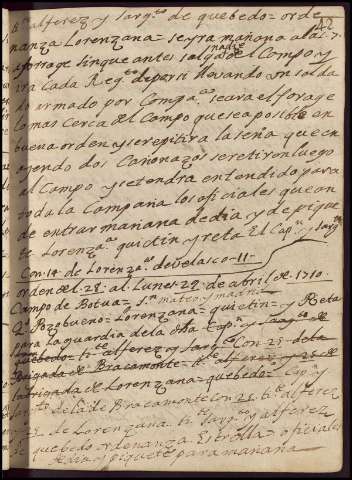 42
te alferez y sargto de quebedo = orde
nanza Lorenzana = se yra mañana a las 7
a forrage sin que antes salga nadie del Campo y
ira Cada Regto de por si llevando un solda
do armado por Compa se ara el forage
lo mas Cerca del Campo que sea posible en
buena orden y se repitira la seña que en
oyendo dos Cañonazos se retiren luego
al Campo y se tendra entendido para
toda la Campaña los oficiales que an
de entrar mañana de dia y de pique
te Lorenza quietin y reta El Capn y sargto
Con 14 de Lorenza de Velasco 11
orden del 28 al Lunes 29 de abril de 1710
Campo de Botua = Sn mateo y madrid
Pozobueno = Lorenzana = quietin = y Reta
para la guardia de la dha Capn y sargto de
quebedo = te alferez y sargto Con 25 de la
Brigada de Bracamonte = te alferez y 25 de
la brigada de Lorenzana = quebedo = Capn y
sargto de la de Bracamonte Con 25 te alferez
25 de Lorenzana te sargto y alferez
quebedo y denanza Estrella = oficiales
de dia y piquete para mañana